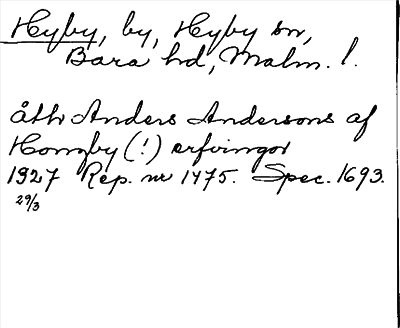 Hyby, by, Hyby sn,
Bara hd, Malm. l.
åth Anders Andersons af
Homby (!) erfvingor
1927 Rep. nr 1475. Spec. 1693.
29/3